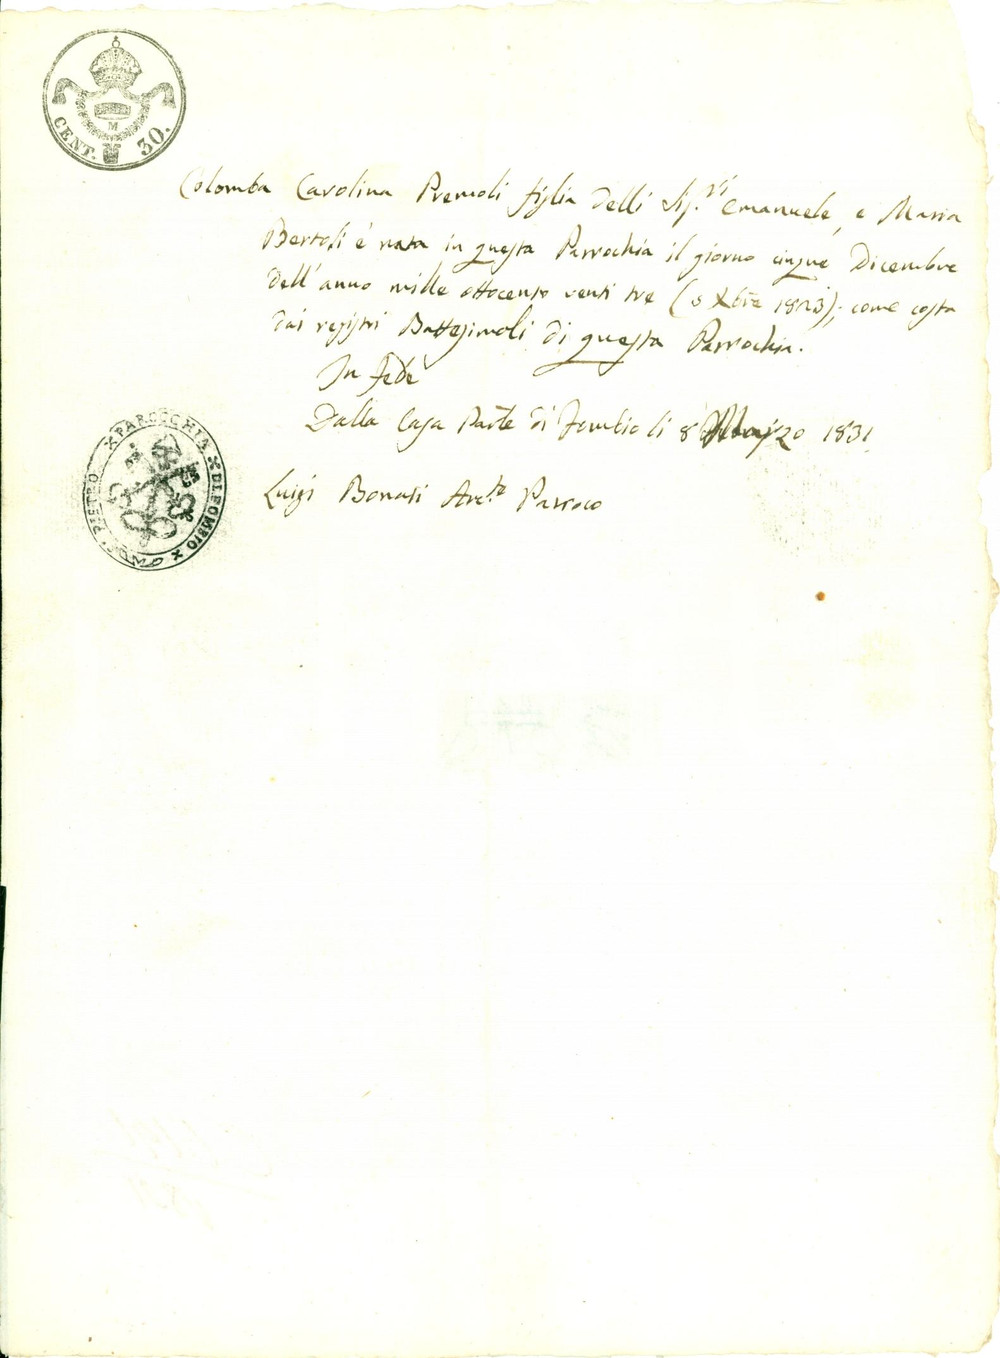 CENT. 30.
M
Colomba Carolina Premoli figlia delli Sig.ri Emanuele, e Maria
Bertoli è nata in questa Parrochia il giorno cinque Dicembre
dell'anno mille ottocento venti tre (5 Xbre 1823); come costa
dai registri Battesimali di questa Parrochia.
In fede
Dalla Casa Parle di Fombio li 8 Marzo 1831
PAROCCHIA DI FOMBIO
PIETRO
Luigi Bonati Arc.te Parroco